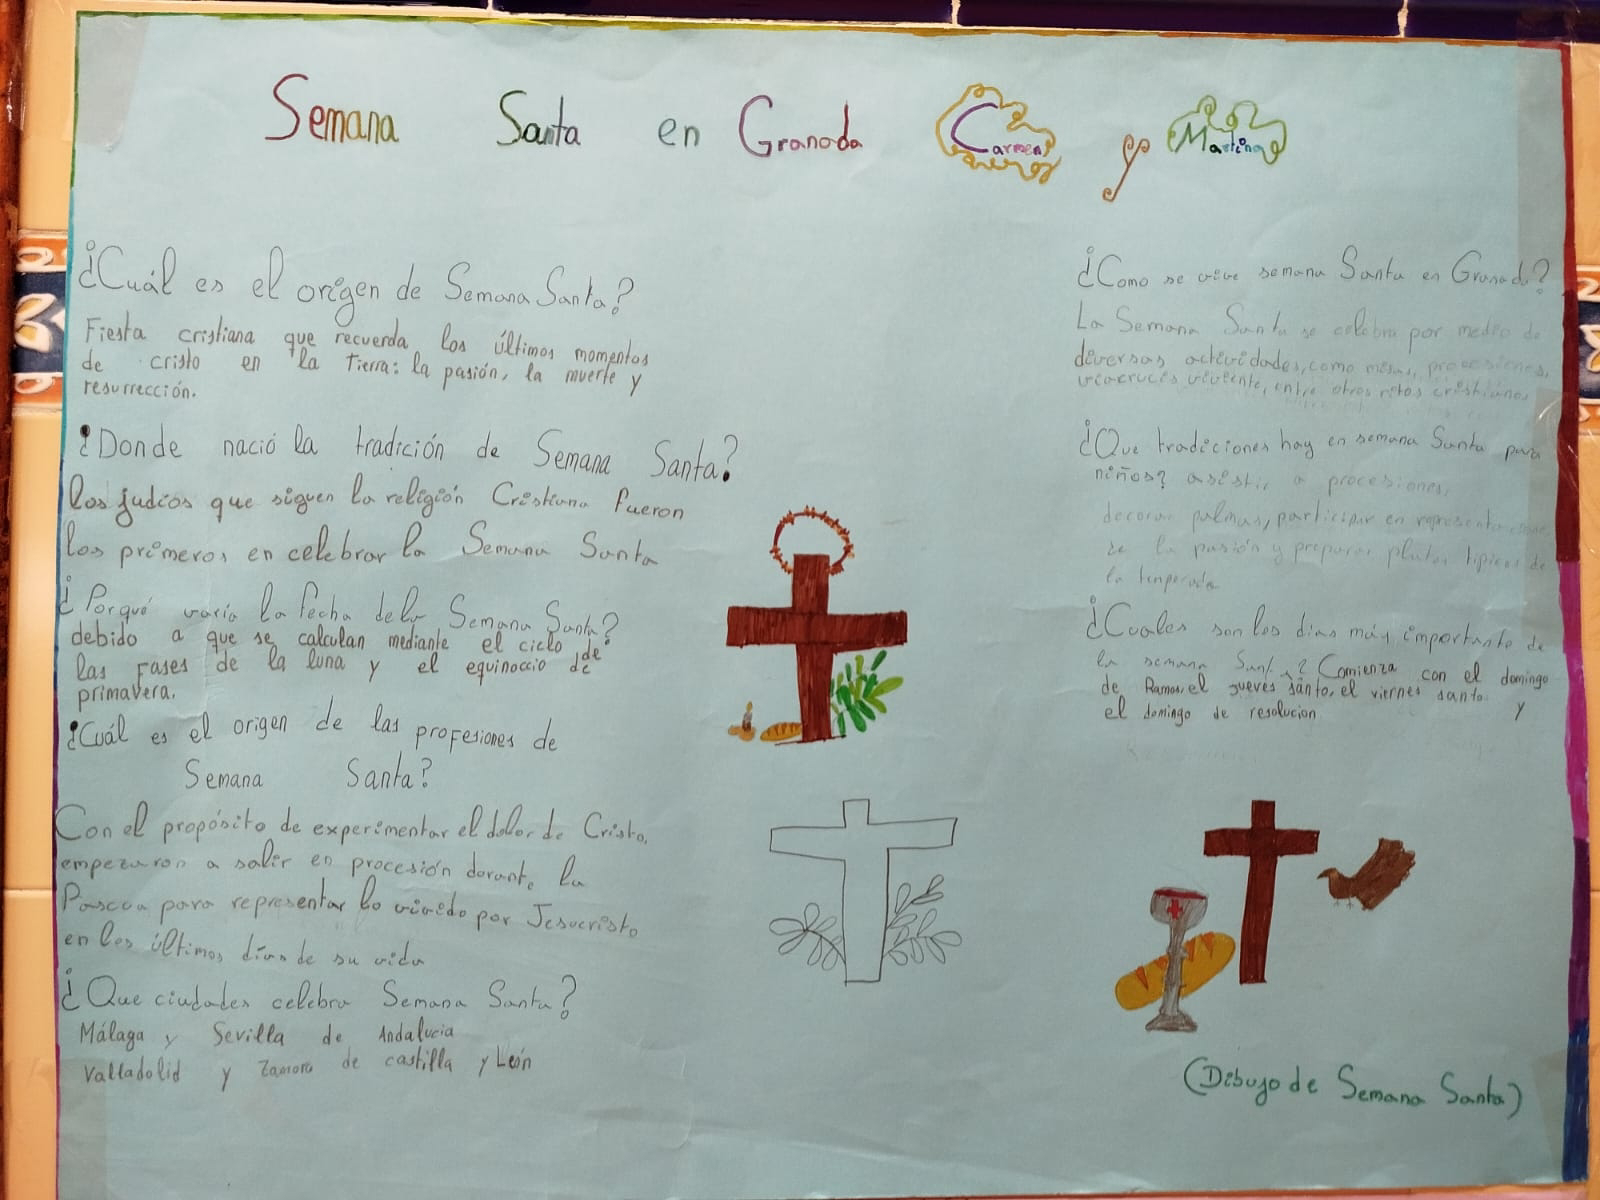 Semana Santa en Granada Carmen y Martina
¿Cuál es el origen de Semana Santa?
Fiesta cristiana que recuerda los últimos momentos
de cristo en la Tierra: la pasión, la muerte y
resurrección.
¿Donde nació la tradición de Semana Santa?
los judíos que siguen la religión Cristiana fueron
los primeros en celebrar la Semana Santa
¿Porqué varía la fecha de la Semana Santa?
debido a que se calculan mediante el ciclo de
las Fases de la luna y el equinoccio de
primavera.
¿Cuál es el origen de las profesiones de
Semana Santa?
Con el propósito de experimentar el dolor de Cristo,
empezaron a salir en procesión durante la
Pascua para representar lo vivido por Jesucristo
en los últimos días de su vida
¿Que ciudades celebra Semana Santa?
Málaga y Sevilla de Andalucia
Valladolid y Zamora de castilla y León
¿Como se vive semana Santa en Granada?
La Semana Santa se celebra por medio de
diversas actividades, como misas, procesiones,
viacrucis viviente, entre otros ritos cristianos
¿Que tradiciones hay en semana Santa para
niños? asistir a procesiones,
decorar palmas, participar en representaciones
de la pasión y preparar platos tipicos de
la temporada
¿Cuales son los dias más importante de
la semana Santa? Comienza con el domingo
de Ramos, el jueves santo, el viernes santo y
el domingo de resolucion
(Dibujo de Semana Santa)